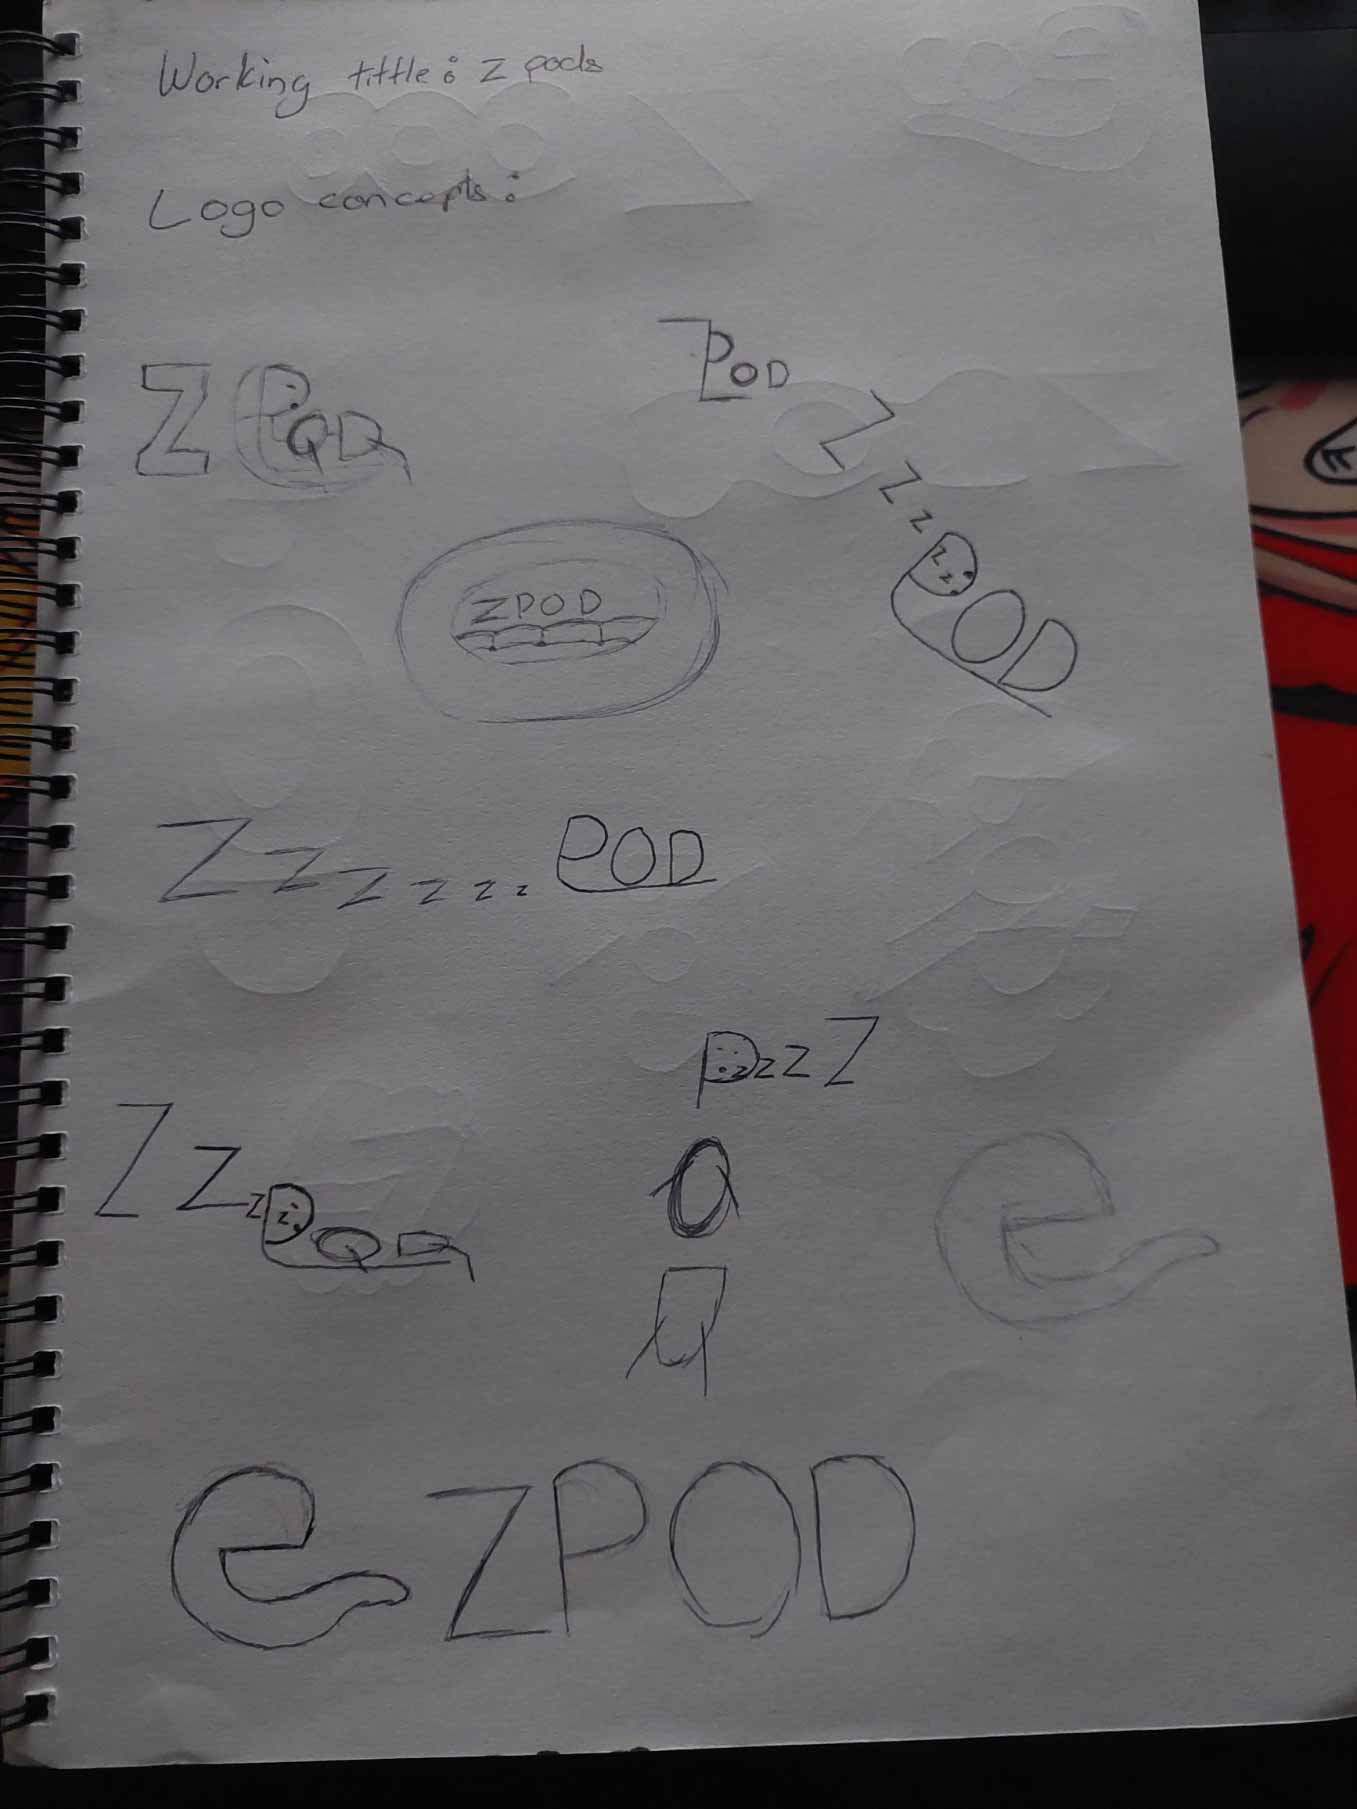 Working tittle: Z pods
Logo concepts:
Z POD
ZPOD
Z z z POD
z z
ZPOD
Z z z z z z POD
P z z Z
O
D
Z z z POD
z
e
e ZPOD